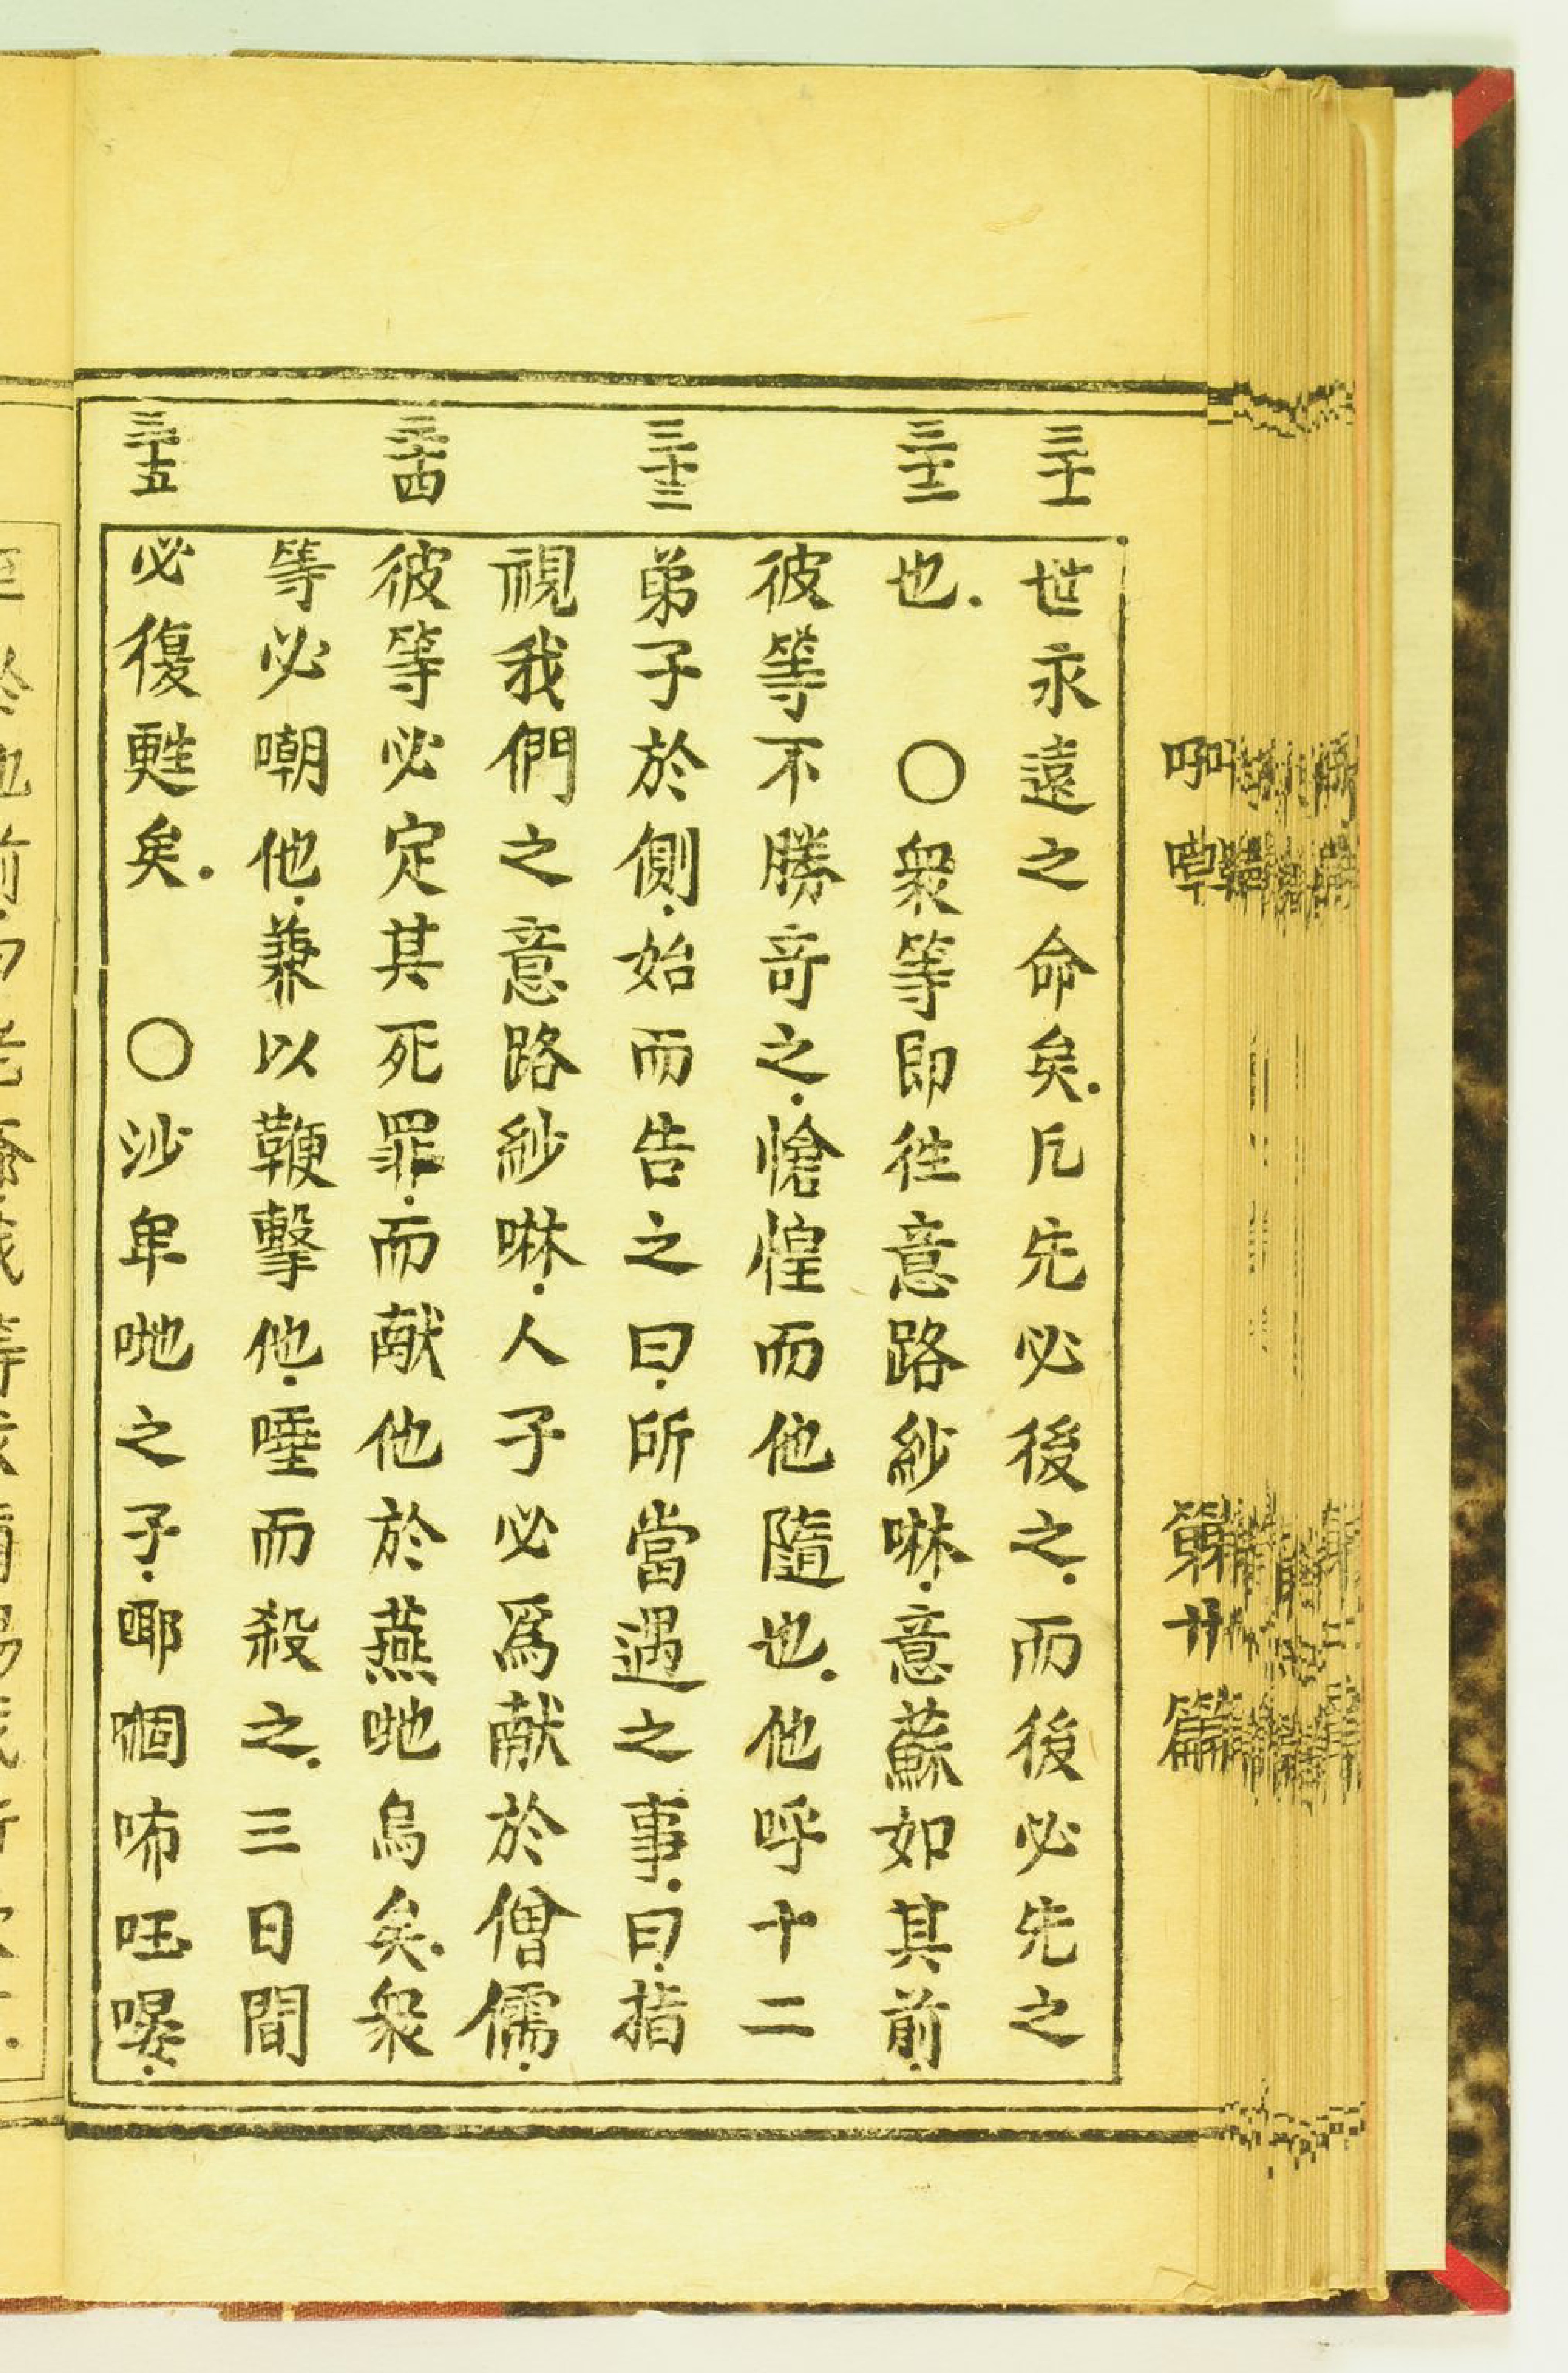 三十一
世永遠之命矣.凡先必後之.而後必先之
三十二
也. 〇衆等即徃意路紗啉.意蘇如其前.
彼等不勝竒之.愴惶而他隨也.他呼十二
三十三
弟子於側.始而告之曰.所當遇之事.曰.指
視我們之意路紗啉.人子必爲献於僧儒.
三十四
彼等必定其死罪.而献他於燕吔烏矣.衆
等必嘲他.兼以鞭擊他.唾而殺之.三日間
三十五
必復甦矣. 〇沙卑吔之子.㖿啯咘
第廾篇